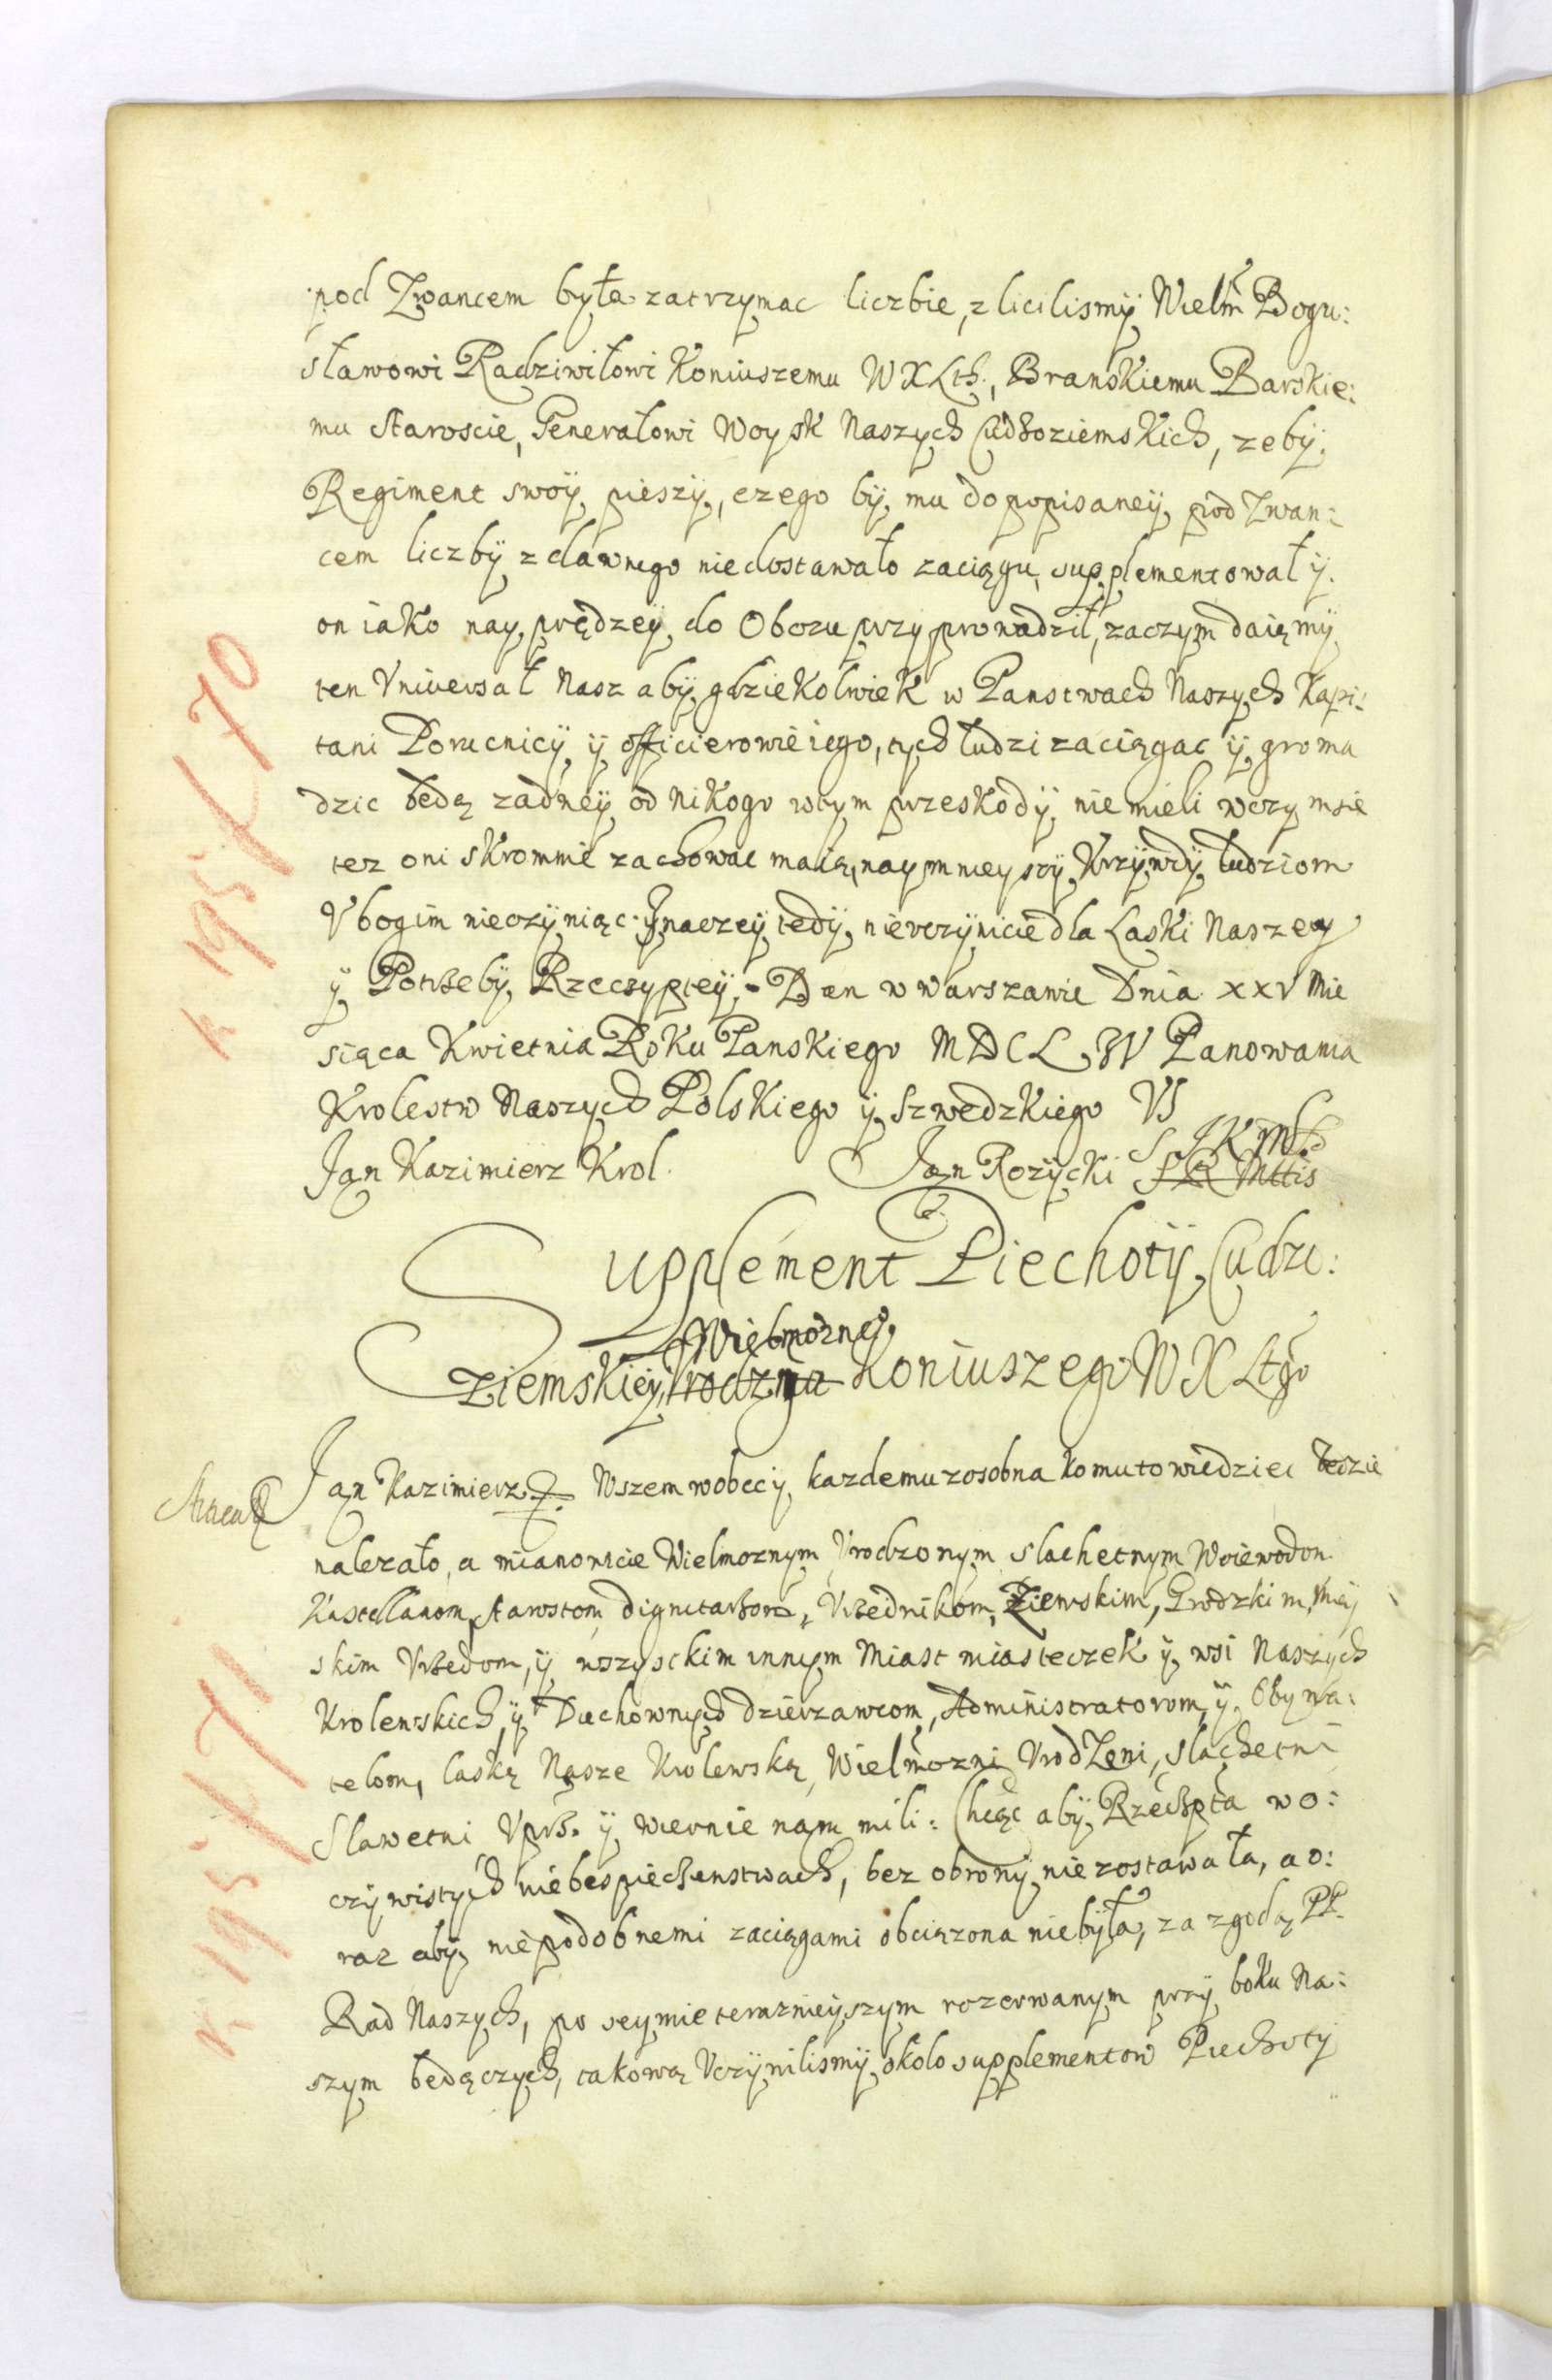 pod Zwancem była zatrzymac liczbie, zlicilismÿ Wielm Bogu:
sławowi Radziwiłowi Koniuszemu WXLth., Branskiemu Barskie:
mu Staroscie, Generałowi Woysk Naszych Cudzoziemskich, zebÿ
Regiment swoÿ pieszÿ, czego bÿ mu do popisaneÿ pod Zwan:
cem liczbÿ z dawnego niedostawało zaciągu, supplementował ÿ
on iako nay prędzeÿ do Obozu przyprowadził, zaczym daięmÿ
ten Vniversał Nasz abÿ gdziekolwiek w Panstwach Naszych Kapi:
tani Porucnicÿ ÿ officierowie iego, tych ludzi zaciągac ÿ groma
dzic będą zadneÿ od nikogo wtym przeskodÿ nie mieli wczym sie
tez oni skromnie zachowac maią, naymnieyszÿ Krzÿwdÿ ludziom
Vbogim nieczÿniąc. Jnaczeÿ tedÿ nievczÿnicie dla Łaski Naszey
ÿ Potrzebÿ Rzeczypteÿ. Dan w Warszawie Dnia XXV Mie
siąca Kwietnia Roku Panskiego MDCLIV Panowania
Krolestw Naszych Polskiego ÿ Szwedzkiego VJ
Jan Kazimierz Krol. Jan Rozÿcki S JKMsci SR Mttis
Supplement Piechotÿ Cudzo:
Wielmozneg
ziemskieÿ Koniuszego WXLtgo
Jan Kazimierz &. Wszem wobecÿ kazdemu zosobna komu to wiedziec będzie
nalezało, a mianowicie Wielmoznym Vrodzonym Slachetnym Woiewodom
Kastellanom, Starostom dignitarzom, Vrzednikom, Ziemskim, Grodzkim, Miey
skim Vrzedom, ÿ wszystkim innym Miast miasteczek ÿ wsi Naszych
Krolewskich, ÿ Duchownych dzierzawcom, Administratorom, ÿ Obywa:
telom, łaskę Nasze Krolewską, Wielmozni VrodZeni, Slachetni
Slawetni Vprz. ÿ wiernie nam mili: Chcąc abÿ Rzeczpta wo:
czÿwistych niebespieczenstwach, bez obronÿ niezostawała, a o:
raz abÿ niepodobnemi zaciągami obciązona niebyła, za zgodą PP.
Rad Naszych, po seymie teraznieyszym rozerwanym przÿ boku Na:
szym będączych, takową Vczÿnilismÿ okolo supplementow Piechotÿ
K 195 f 70
K 195 f 71